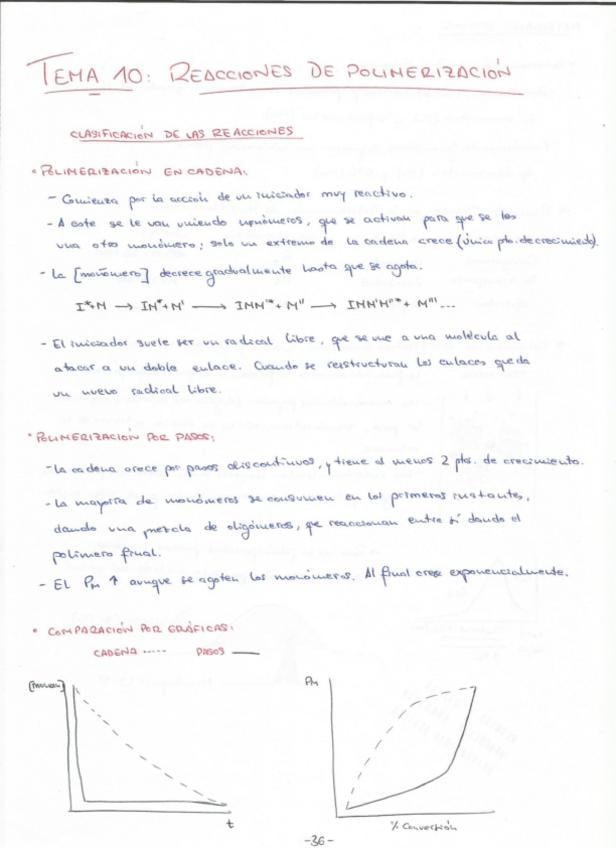 TEMA 10: REACCIONES DE POLIMERIZACIÓN
CLASIFICACIÓN DE LAS REACCIONES
• POLIMERIZACIÓN EN CADENA:
- Comienza por la acción de un iniciador muy reactivo.
- A este se le van uniendo monómeros, que se activan para que se les
una otro monómero; solo un extremo de la cadena crece (única pto. de crecimiento).
- La [monómero] decrece gradualmente hasta que se agota.
I*+M → IM*+M' → IMM'*+ M'' → IMM'M''*+ M'''...
- El iniciador suele ser un radical libre, que se une a una molécula al
atacar a un doble enlace. Cuando se reestructuran los enlaces queda
un nuevo radical libre.
• POLIMERIZACIÓN POR PASOS:
- La cadena crece por pasos discontinuos, y tiene al menos 2 pts. de crecimiento.
- La mayoría de monómeros se consumen en los primeros instantes,
dando una mezcla de oligómeros, que reaccionan entre sí dando el
polímero final.
- El PM ↑ aunque se agoten los monómeros. Al final crece exponencialmente.
• COMPARACIÓN POR GRÁFICAS:
CADENA ----- PASOS ——
PM
t
% Conversión
-36-